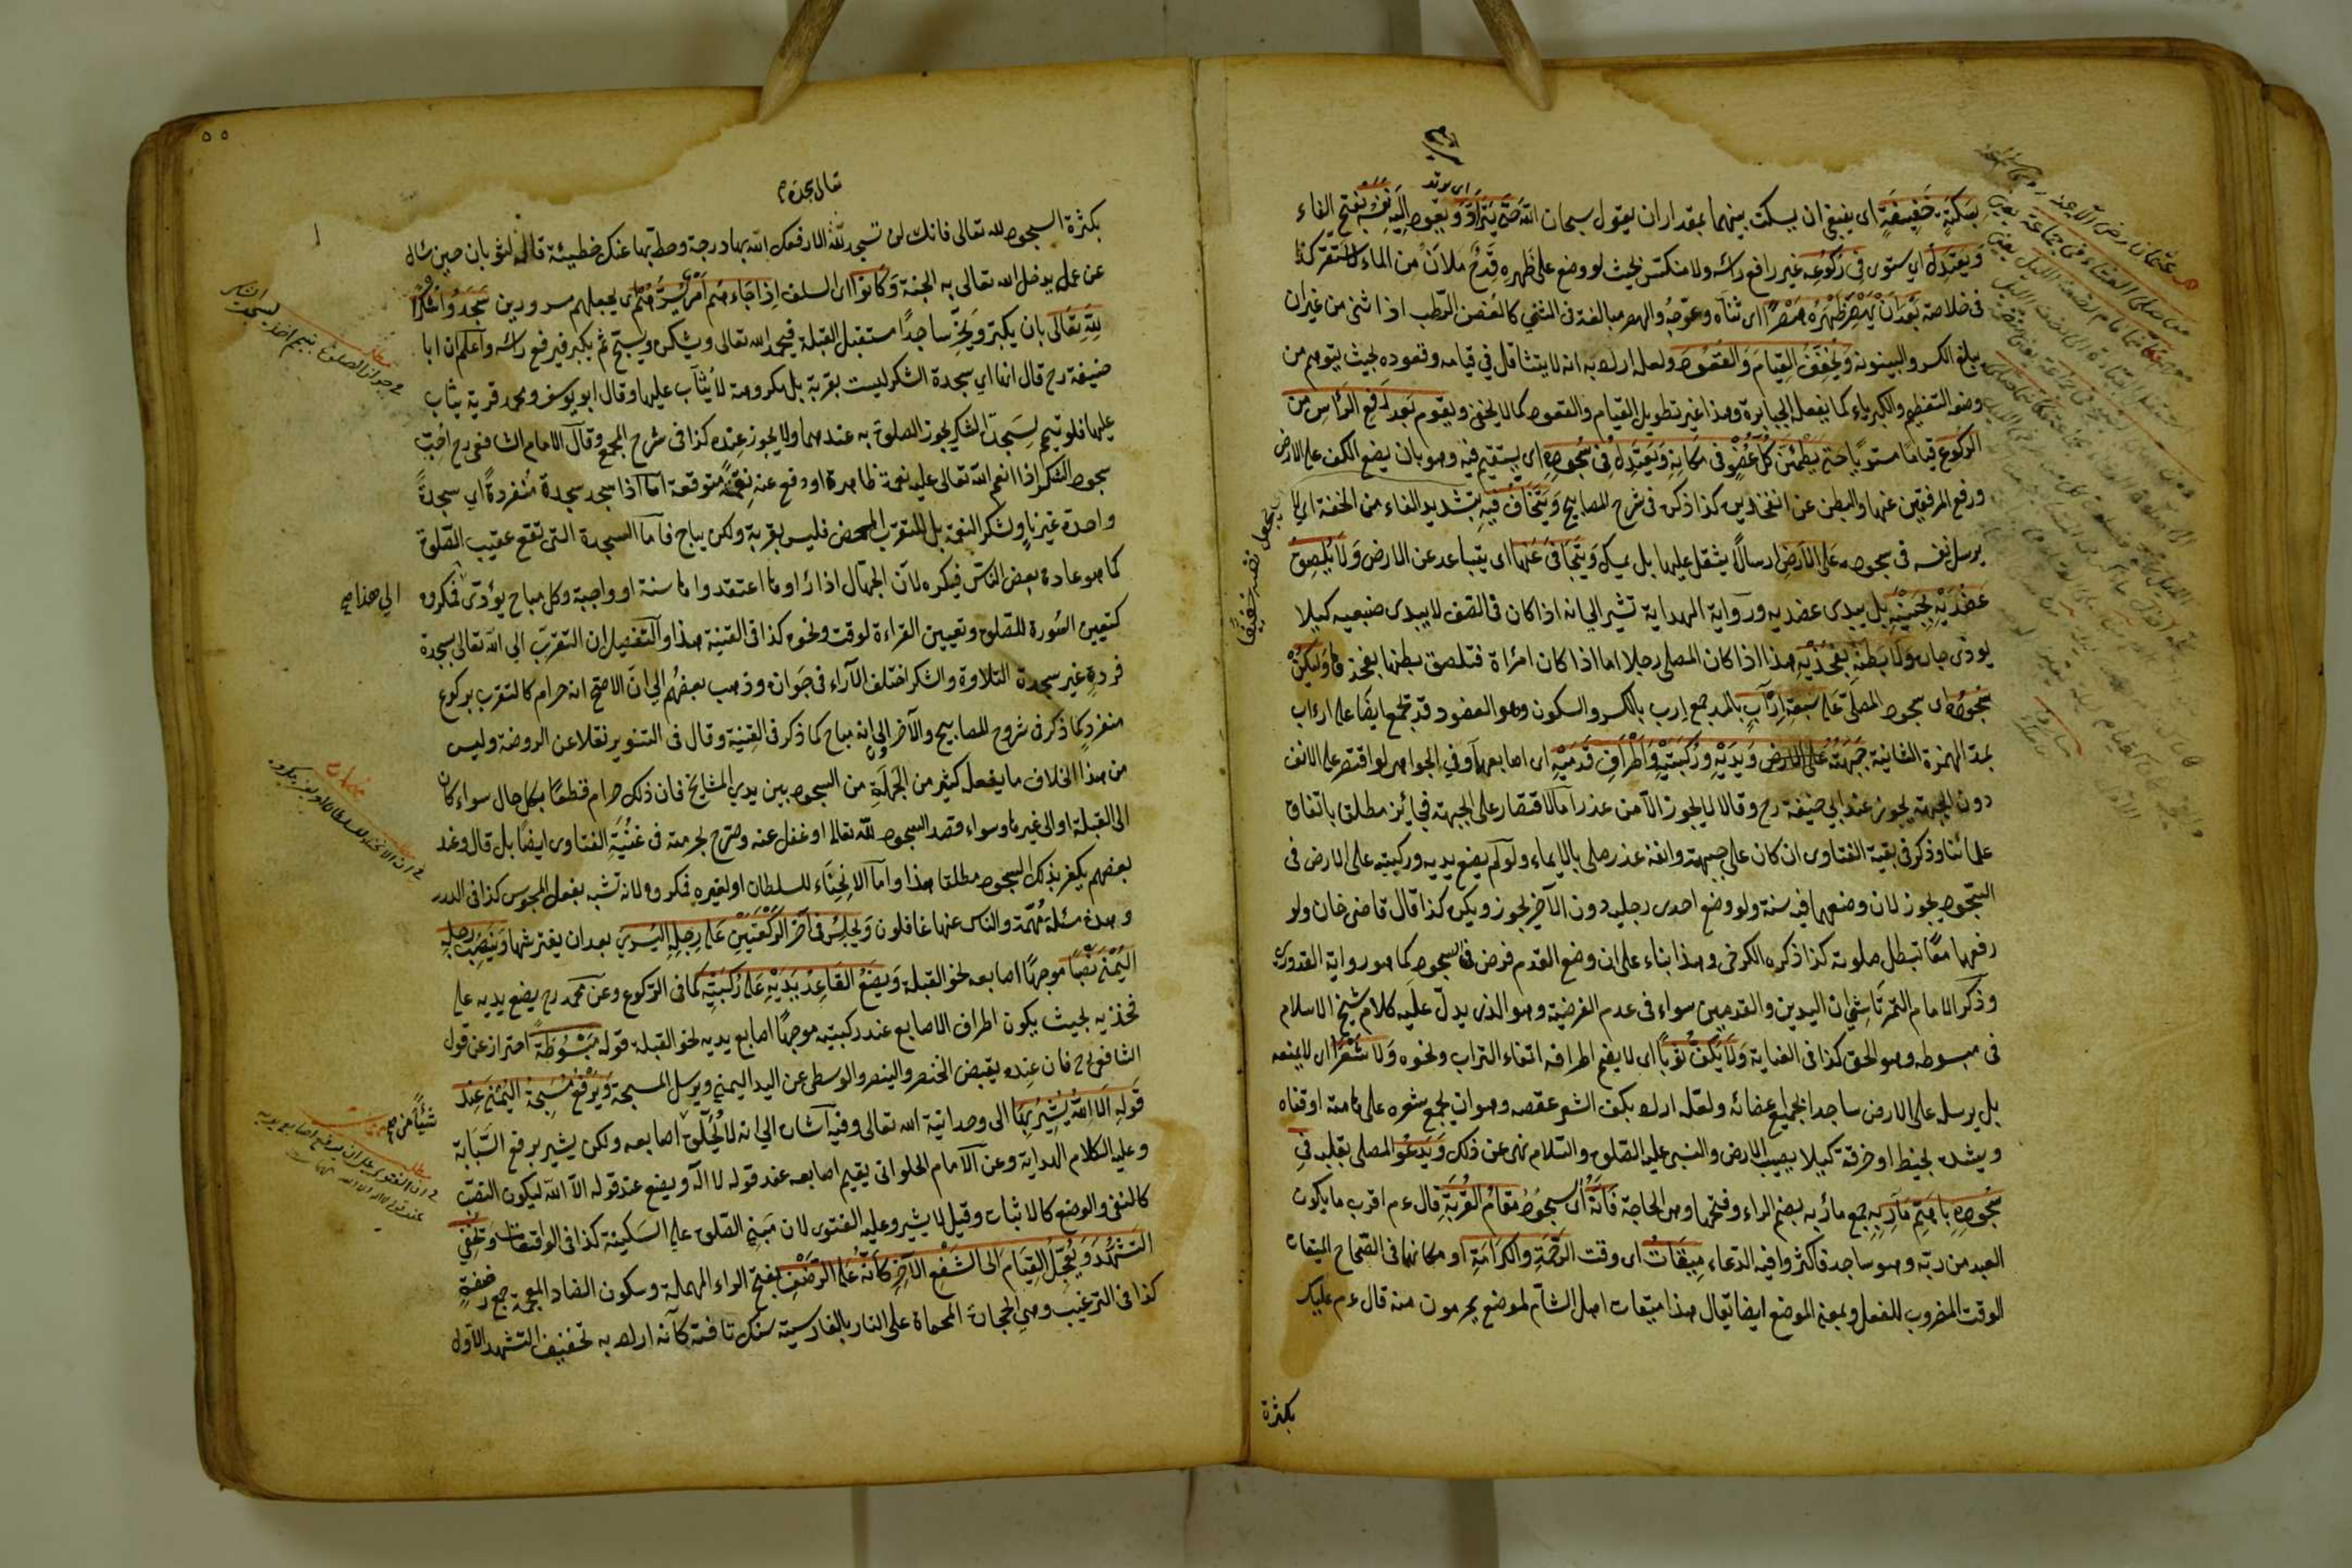 بسكتة خفيفة اى ينبغي ان يسكت بينهما بمقدار ان يقول سبحان الله حتى يتراد ويعود اليه نفسه بفتح الفاء
ويعتدل اي يستوى فى ركوعه غير رافع راسه ولا منكس بحيث لو وضع على ظهره قدح ملآن من الماء لاستقر كذا
فى خلاصة بعد ان يهصر ظهره هصرا اى ثناه وعوجه والهصر مبالغة فى الثني كالغصن الرطب اذا ثنى من غير ان
يبلغ الكسر والبينونة ويخفف القيام والقعود ولعله اراد به انه لا يتثاقل في قيامه وقعوده بحيث يتوهم من
وضعه التعظيم والكبرياء كما يفعله الجبابرة وهذا غير تطويل القيام والقعود كما لا يخفى ويقوم بعد رفع الراس من
الركوع قياما مستويا حتى يطمئن كل عضو فى مكانه ويعتدل فى سجوده اى يستقيم فيه وهو بان يضع الكف على الارض
ورفع المرفقين عنها والبطن عن الفخذين كذا ذكر فى شرح المصابيح ويتخاف فيه بتشديد الفاء من الخفة اى لا
يرسل نفسه فى سجوده على الارض ارسالا يثقل عليها بل يمسك ويتجافى عنها اى يتباعد عن الارض ولا يلصق
عضديه بجنبيه بل يبدى عضديه ورواية الهداية تشير الى انه اذا كان فى الصف لا يبدى ضبعيه كيلا
يوذى جاره ولا بطنه بفخذيه هذا اذا كان المصلى رجلا اما اذا كان امرأة فتلصق بطنها بفخذها وليكن
سجوده اى سجود المصلى على سبعة ارآب بالمد جمع ارب بالكسر والسكون وهو العضو وقد تجمع ايضا على ارءاب
بمد الهمزة الثانية جبهته على الارض ويديه وركبتيه واطراف قدميه اى اصابعها وفي الجواهر لو اقتصر على الانف
دون الجبهة يجوز عند ابي حنيفة رح وقالا لا يجوز الا من عذر اما الاقتصار على الجبهة فجائز مطلق باتفاق
علمائنا وذكر فى بقية الفتاوى ان كان على جبهته وانفه عذر صلى بالايماء ولو لم يضع يديه وركبتيه على الارض فى
السجود يجوز لان وضعهما فيه سنة ولو وضع احدى رجليه دون الآخر يجوز ويكره كذا قال قاضى خان ولو
رفعهما معا تبطل صلوته كذا ذكره الكرخى وهذا بناء على ان وضع القدم فرض فى السجود كما هو رواية القدورى
وذكر الامام التمرتاشي ان اليدين والقدمين سواء فى عدم الفرضية وهو الذى يدل عليه كلام شيخ الاسلام
فى مبسوطه وهو الحق كذا فى العناية ولا يكف ثوبا اى لا يضم اطرافه اتقاء التراب ونحوه ولا شعرا اى لا يمنعه
بل يرسله على الارض ساجدا بجميع اعضائه ولعله اراد بكف الشعر عقصه وهو ان يجمع شعره على هامته او قفاه
ويشده بخيط او خرقة كيلا يصيب الارض والنبى عليه الصلوة والسلام نهى عن ذلك ويدعو المصلى بقلبه فى
سجوده باهم مآربه جمع مأربه بضم الراء وفتحها وهى الحاجة فانه اى سجوده مقام القربة قال ءم اقرب ما يكون
العبد من ربه وهو ساجد فاكثروا فيه الدعاء ميقات اى وقت الرحمة والكرامة او مكانها فى الصحاح الميقات
الوقت المضروب للفعل وبمعنى الموضع ايضا يقال هذا ميقات اهل الشام لموضع يحرمون منه قال ءم عليك
بكثرة
٥٥
بكثرة السجود لله تعالى فانك لن تسجد لله الا رفعك الله بها درجة وحط بها عنك خطيئة قاله لثوبان حين سأله
عن عمل يدخل الله تعالى به الجنة وكانوا اى السلف اذا جاءهم امر يسرهم اى يجعلهم مسرورين سجدوا شكرا
لله تعالى بان يكبر ويخر ساجدا مستقبل القبلة فيحمد الله تعالى ويشكر ويسبح ثم يكبر فيرفع راسه واعلم ان ابا
حنيفة رح قال انها اي سجدة الشكر ليست بقربة بل مكروهة لا يثاب عليها وقال ابو يوسف ومحمد قربة يثاب
عليها فلو تيمم لسجدة الشكر يجوز الصلوة به عندهما ولا يجوز عنده كذا فى شرح المجمع وقال الامام الشافعى رح احب
سجود الشكر اذا انعم الله تعالى عليه نعمة ظاهرة او دفع عنه نقمة متوقعة اما اذا سجد سجدة منفردة اي سجدة
واحدة غير ناو شكر النعمة بل للتقرب المحض فليس بقربة ولكن يباح فاما السجدة التى تقع عقيب الصلوة
كما هو عادة بعض الناس فيكره لان الجهال اذا رأوها اعتقدوها سنة او واجبة وكل مباح يؤدى فمكروه
كتعيين السورة للصلوة وتعيين القراءة لوقت ونحوه كذا فى القنية هذا والتفصيل ان التقرب الى الله تعالى بسجدة
فردة غير سجدة التلاوة والشكر اختلف الآراء فى جوازه وذهب بعضهم الى ان الاصح انه حرام كالتقرب بركوع
منفرد كما ذكر فى شروح المصابيح والآخر الى انه مباح كما ذكر فى القنية وقال فى التنوير نقلا عن الروضة وليس
من هذا الخلاف ما يفعله كثير من الجهلة من السجود بين يدي المشايخ فان ذلك حرام قطعا بكل حال سواء كان
الى القبلة او الى غيرها وسواء قصد السجود لله تعالى او غفل عنه وصرح بحرمته فى غنية الفتاوى ايضا بل قال وعند
بعضهم يكفر بذلك السجود مطلقا هذا واما الانحناء للسلطان او لغيره فمكروه لانه تشبه بفعل المجوس كذا فى الدرر
وهذه مسئلة مهمة والناس عنها غافلون ويجلس فى آخر الركعتين على رجله اليسرى بعد ان يفترشها وينصب رجله
اليمنى نصبا موجها اصابعه نحو القبلة ويضع القاعد يديه على ركبتيه كما فى الركوع وعن محمد رح يضع يديه على
فخذيه بحيث يكون اطراف الاصابع عند ركبتيه موجها اصابع يديه نحو القبلة قوله مبسوطة احتراز عن قول
الشافعى رح فان عنده يقبض الخنصر والبنصر والوسطى عن اليد اليمنى ويرسل المسبحة ويرفع مسبحة اليمنى عند
قوله الا الله يشير بها الى وحدانية الله تعالى وفيه اشارة الى انه لا يحلق اصابعه ولكن يشير برفع السبابة
وعليه الكلام الهداية وعن الامام الحلوانى يقيم اصابعه عند قوله لا اله ويضع عند قوله الا الله ليكون النصب
كالنفى والوضع كالاثبات وقيل لا يشير وعليه الفتوى لان مبنى الصلوة على السكينة كذا فى الواقعات ويخفى
التشهد ويعجل القيام الى الشفع الآخر كانه على الرضف بفتح الراء المهملة وسكون الضاد المعجمة جمع رضفة
كذا فى الترغيب وهى الحجارة المحماة على النار بالفارسية سنك تافته كأنه اراد به تخفيف التشهد الاول
الى هذا صح